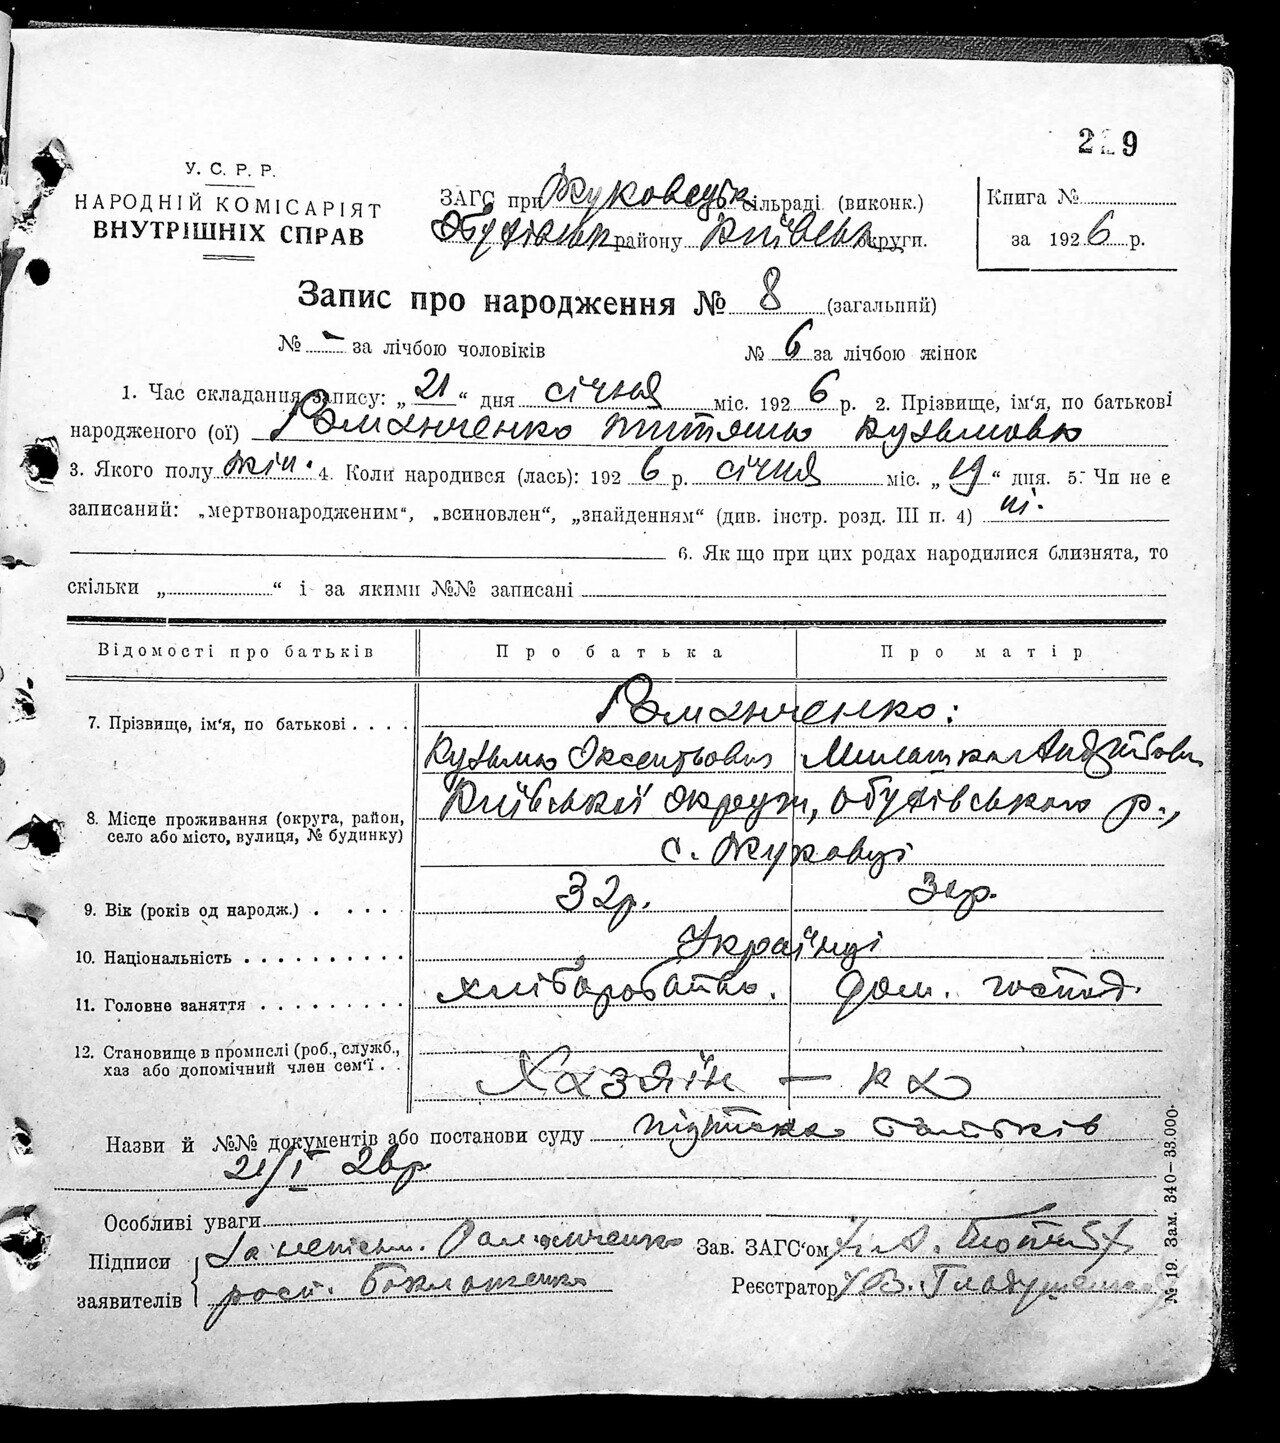 229
У. С. Р. Р.
НАРОДНІЙ КОМІСАРІЯТ
ВНУТРІШНІХ СПРАВ
ЗАГС при Жуковецьк сільраді (виконк.)
Обухівськ району Київськ округи.
Книга №
за 1926 р.
Запис про народження № 8 (загальний)
№ - за лічбою чоловіків № 6 за лічбою жінок
1. Час складання запису: „21“ дня січня міс. 1926 р. 2. Прізвище, ім'я, по батькові
народженого (ої) Романченко Титяна Кузьмовна
3. Якого полу жін. 4. Коли народився (лась): 1926 р. січня міс. „19“ дня. 5. Чи не є
записаний: „мертвонародженим“, „всиновлен“, „знайденням“ (див. інстр. розд. III п. 4) ні.
6. Як що при цих родах народилися близнята, то
скільки „ “ і за якими №№ записані
Відомості про батьків Про батька Про матір
7. Прізвище, ім'я, по батькові . . . . Романченко:
Кузьма Оксентьович
8. Місце проживання (округа, район, село або місто, вулиця, № будинку) Київської округи, Обухівського р.,
с. Жуковці
9. Вік (років од народж.) . . . . . 32р.
10. Національність . . . . . . . . . . Українці
11. Головне заняття . . . . . . . . . дом. господ.
12. Становище в промислі (роб., служб., хаз або допомічний член сем'ї . . Хазяїн — ка
Назви й №№ документів або постанови суду батьків
21/I 26р.
Особливі уваги
Підписи заявителів За неписьм. Романченко
росп.
Зав. ЗАГС'ом
Реєстратор В.
№ 19. Зам. 340—33.000.